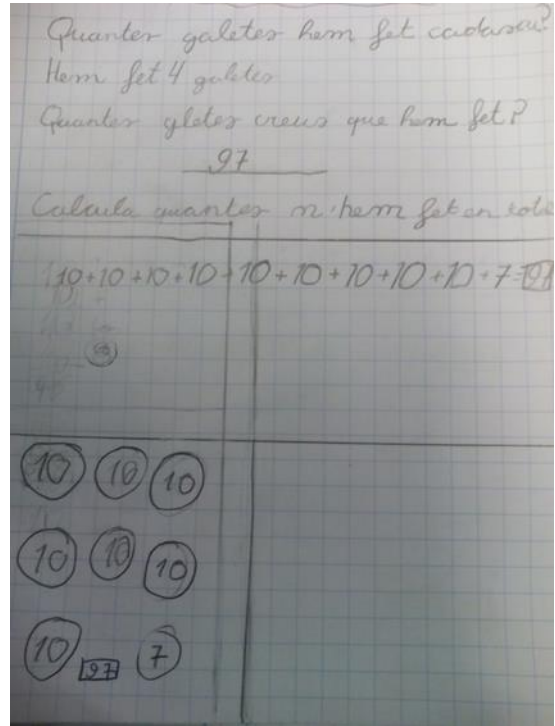 Quantes galetes hem fet cadascú?
Hem fet 4 galetes
Quantes gletes creus que hem fet?
97
Calcula quantes n'hem fet en total
10+10+10+10+10+10+10+10+10+7=97
10 10 10
10 10 10
10 97 7